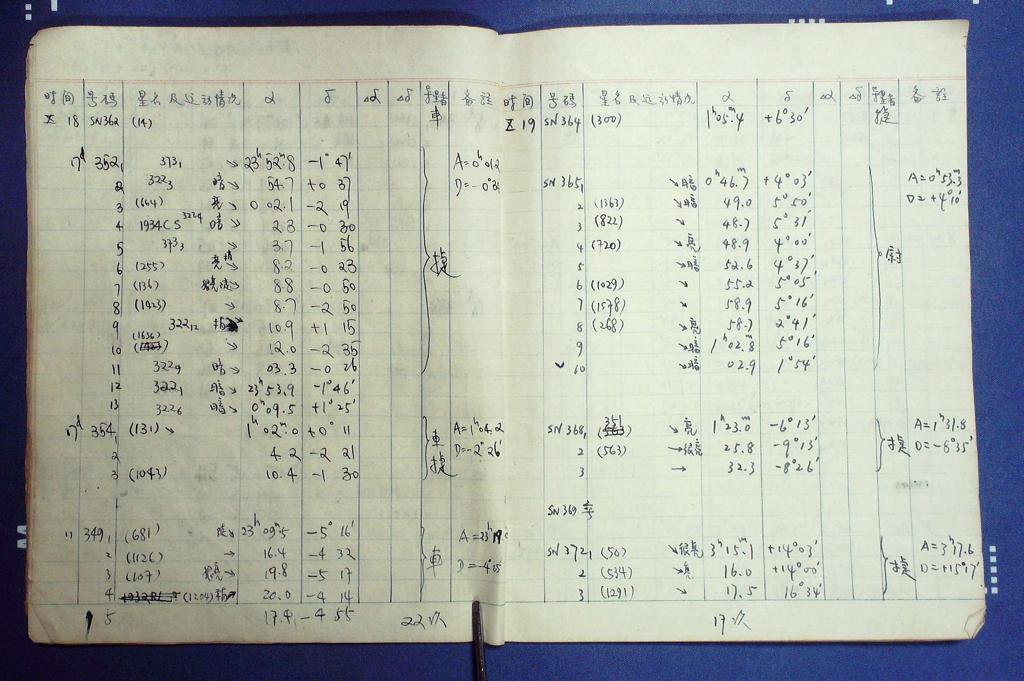 时间 号码 星名及运动情况 α δ Δα Δδ 备註
X 18 SN362 (14) 車
17d 352₁ 373₁ → 23h52m.8 -1° 47' A=0h01.2
2 322₃ 暗→ 54.7 +0 37
3 (664) 亮→ 0 02.1 -2 19
4 1934CS 322₄ 暗 2.3 -0 30
5 373₃ → 3.7 -1 56 捷
6 (255) → 8.2 -0 23
7 (136) 8.8 -0 50
8 (1423) → 8.7 -2 50
9 322₁₂ 10.9 +1 15
10 (1636) → 12.0 -2 35
11 322₉ 暗→ 03.3 -0 26
12 322₁ 暗→ 23h53.9 -1°46'
13 322₆ 暗→ 0h09.5 +1°25'
17d 354₁ (131) → 1h02m.0 +0° 11 車捷 A=1h04.2
2 4.2 -2 21 D=-2°26'
3 (1043) 10.4 -1 30
" 349₁ (681) 23h09m.5 -5° 16' 車 A=23h19
2 (1126) → 16.4 -4 32
3 (107) → 19.8 -5 17 D=-4°25'
4 (1204) 20.0 -4 14
5 17.4 -4 55 22次
时间 号码 星名及运动情况 α δ Δα Δδ 备註
X 19 SN364 (300) 1h05m.4 +6°30' 捷
SN365₁ →暗 0h46.7m +4°03' 尉 A=0h53.3
2 (1363) →暗 49.0 5°50' D=+4°10'
3 (822) → 48.7 5°31'
4 (720) →亮 48.9 4°00'
5 →暗 52.6 4°37'
6 (1029) → 55.2 5°05'
7 (1578) → 58.9 5°16'
8 (268) →亮 58.7 2°41'
9 →暗 1h02m.8 5°16'
10 →暗 02.9 1°54'
SN368₁ →亮 1h23.0m -6°13' 捷 A=1h31.8
2 (563) →很亮 25.8 -9°13' D=-6°35'
3 → 32.3 -8°26'
SN369
SN372₁ (50) →很亮 3h15m.1 +14°03' 捷 A=3h17.6
2 (534) →亮 16.0 +14°00' D=+15°17'
3 (1291) → 17.5 16°34'
17次